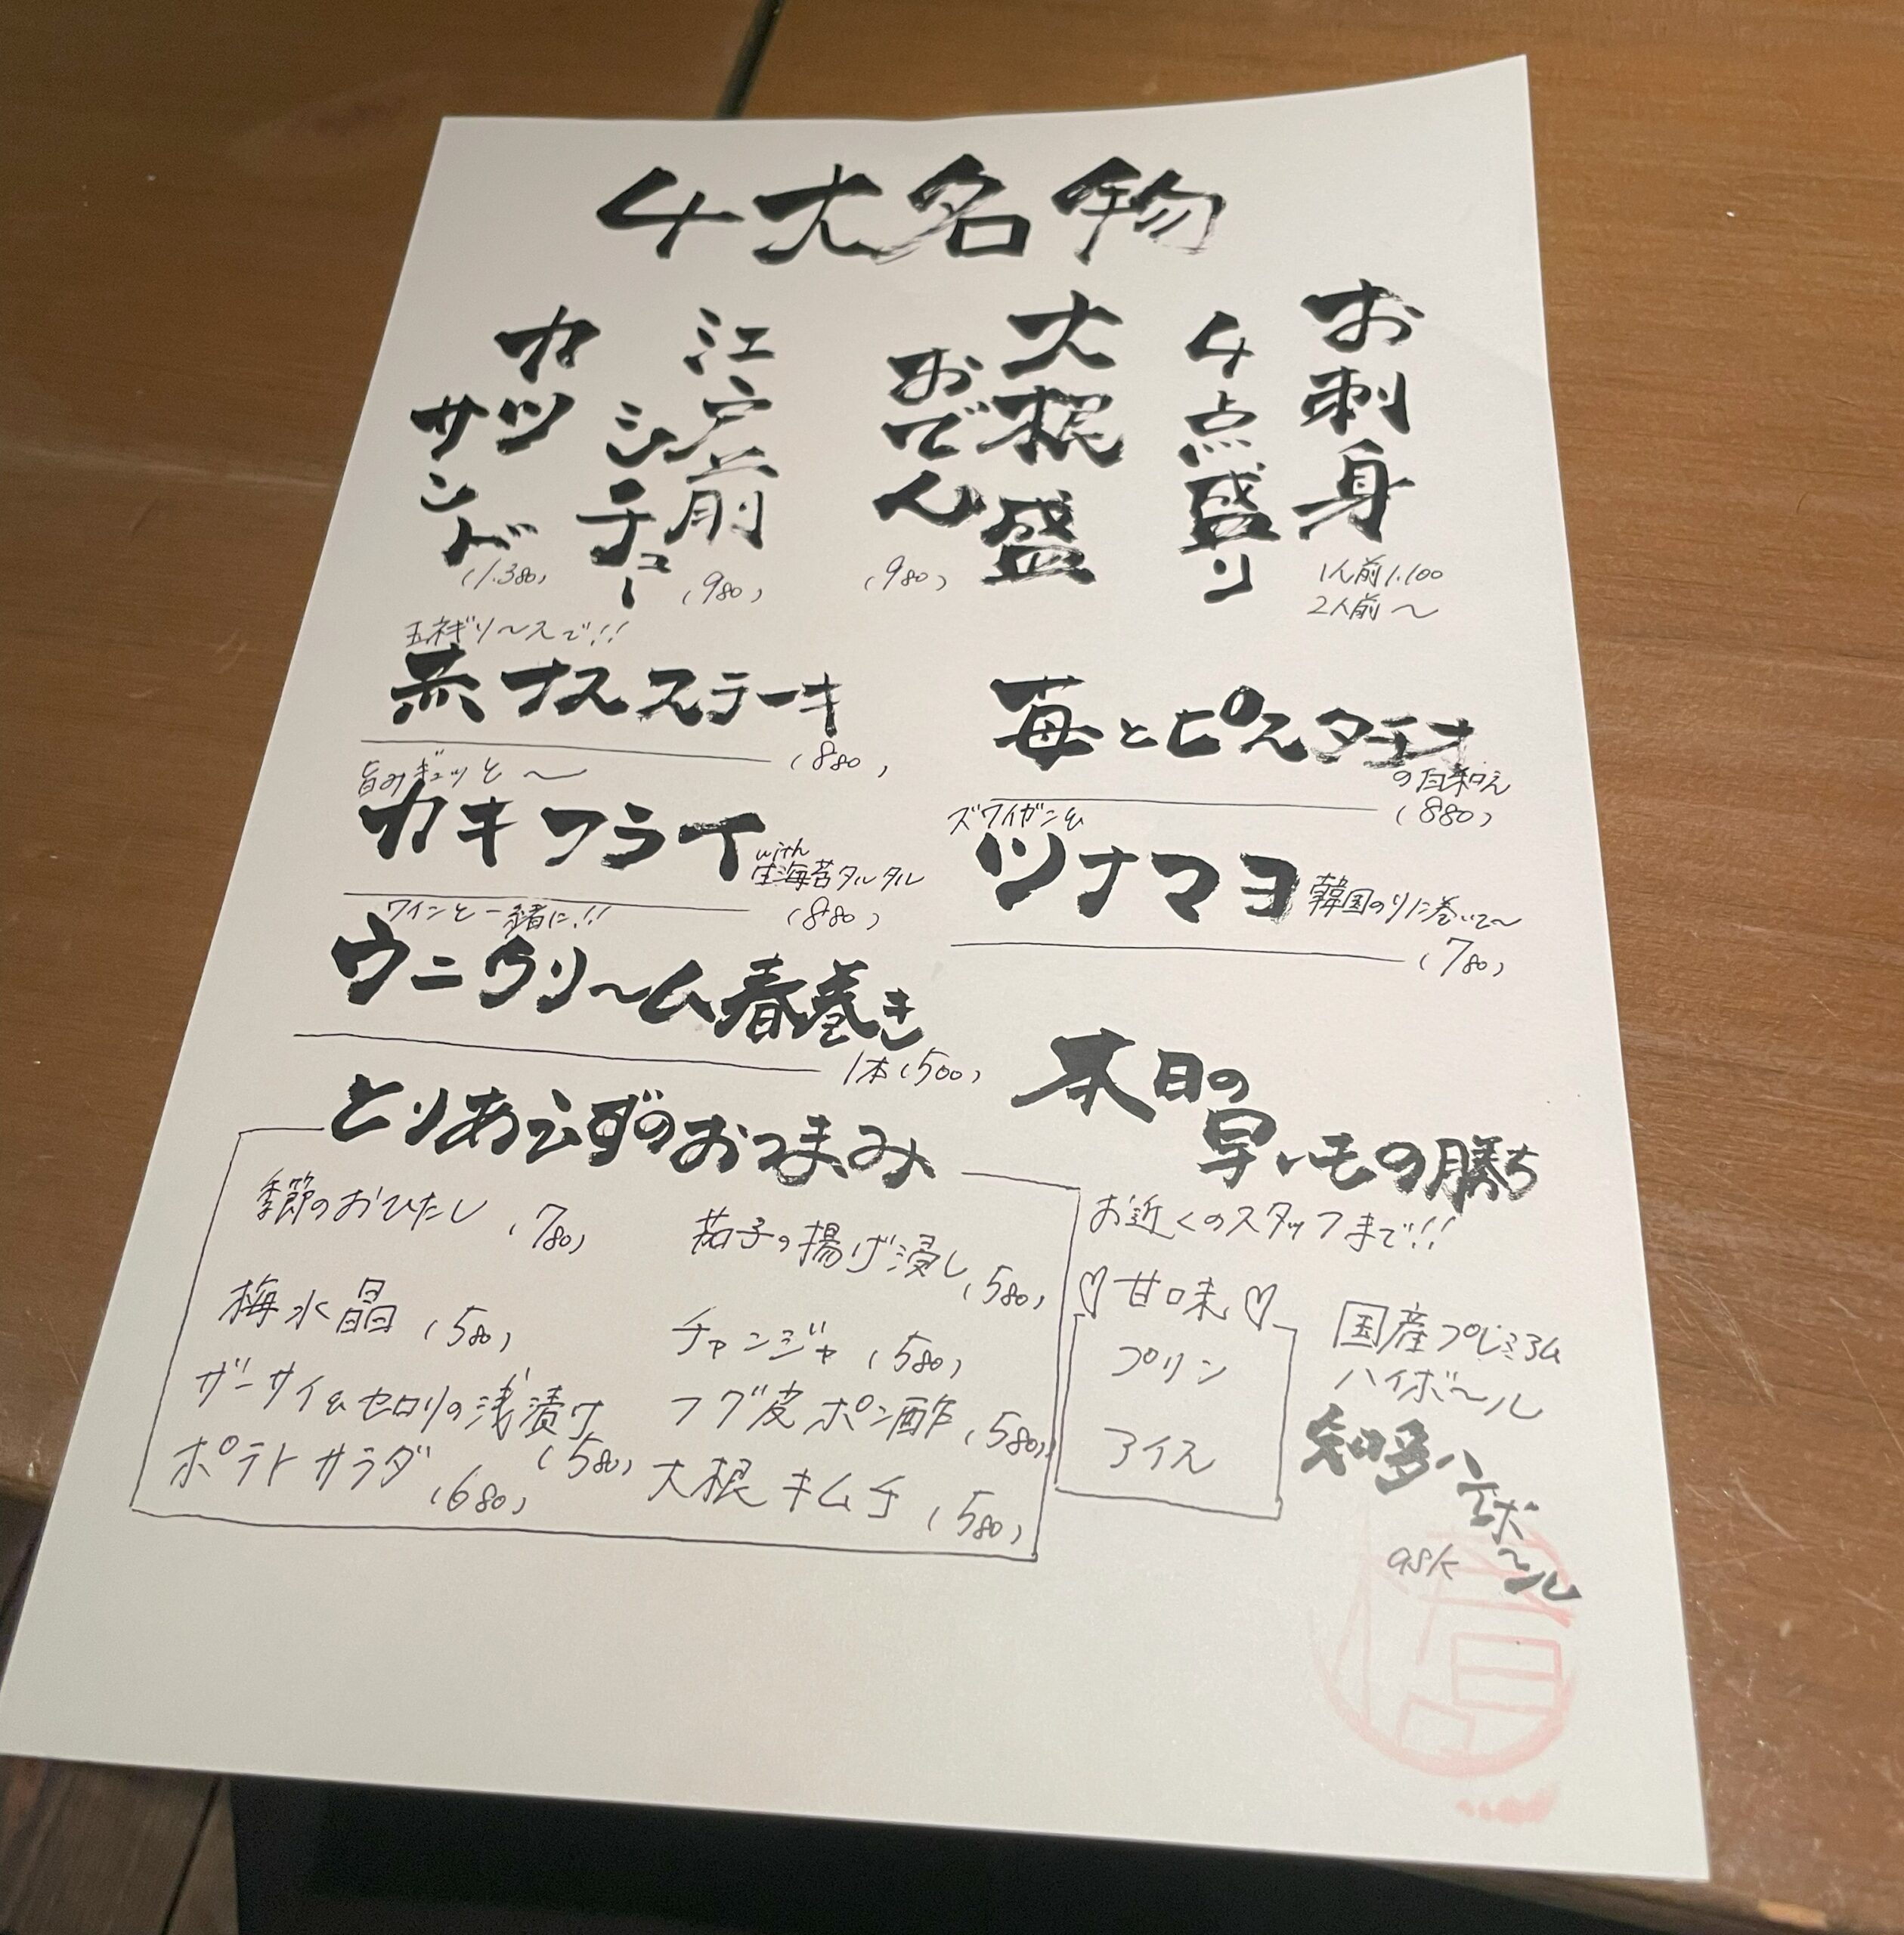 4大名物
お刺身
4点盛り
1人前1.100
2人前〜
大根盛
おでん
(980)
江戸前
シチュー
(980)
カツ
サンド
(1.380)
玉ネギソースで!!
赤ナスステーキ
(880)
苺とピスタチオ
の白和え
(880)
旨みギュッと〜
カキフライ
with
生海苔タルタル
(880)
ズワイガニ&
ツナマヨ 韓国のりに巻いて〜
(780)
ワインと一緒に!!
ウニクリ〜ム春巻き
1本(500)
とりあえずのおつまみ
季節のおひたし (780)
茄子の揚げ浸し (580)
梅水晶 (580)
チャンジャ (580)
ザーサイ&セロリの浅漬け
(580)
フグ皮ポン酢 (580)
ポテトサラダ (680)
大根キムチ (580)
本日の
早いもの勝ち
お近くのスタッフまで!!
♡甘味♡
プリン
アイス
国産プレミアム
ハイボ〜ル
知多ハイボ〜ル
ask